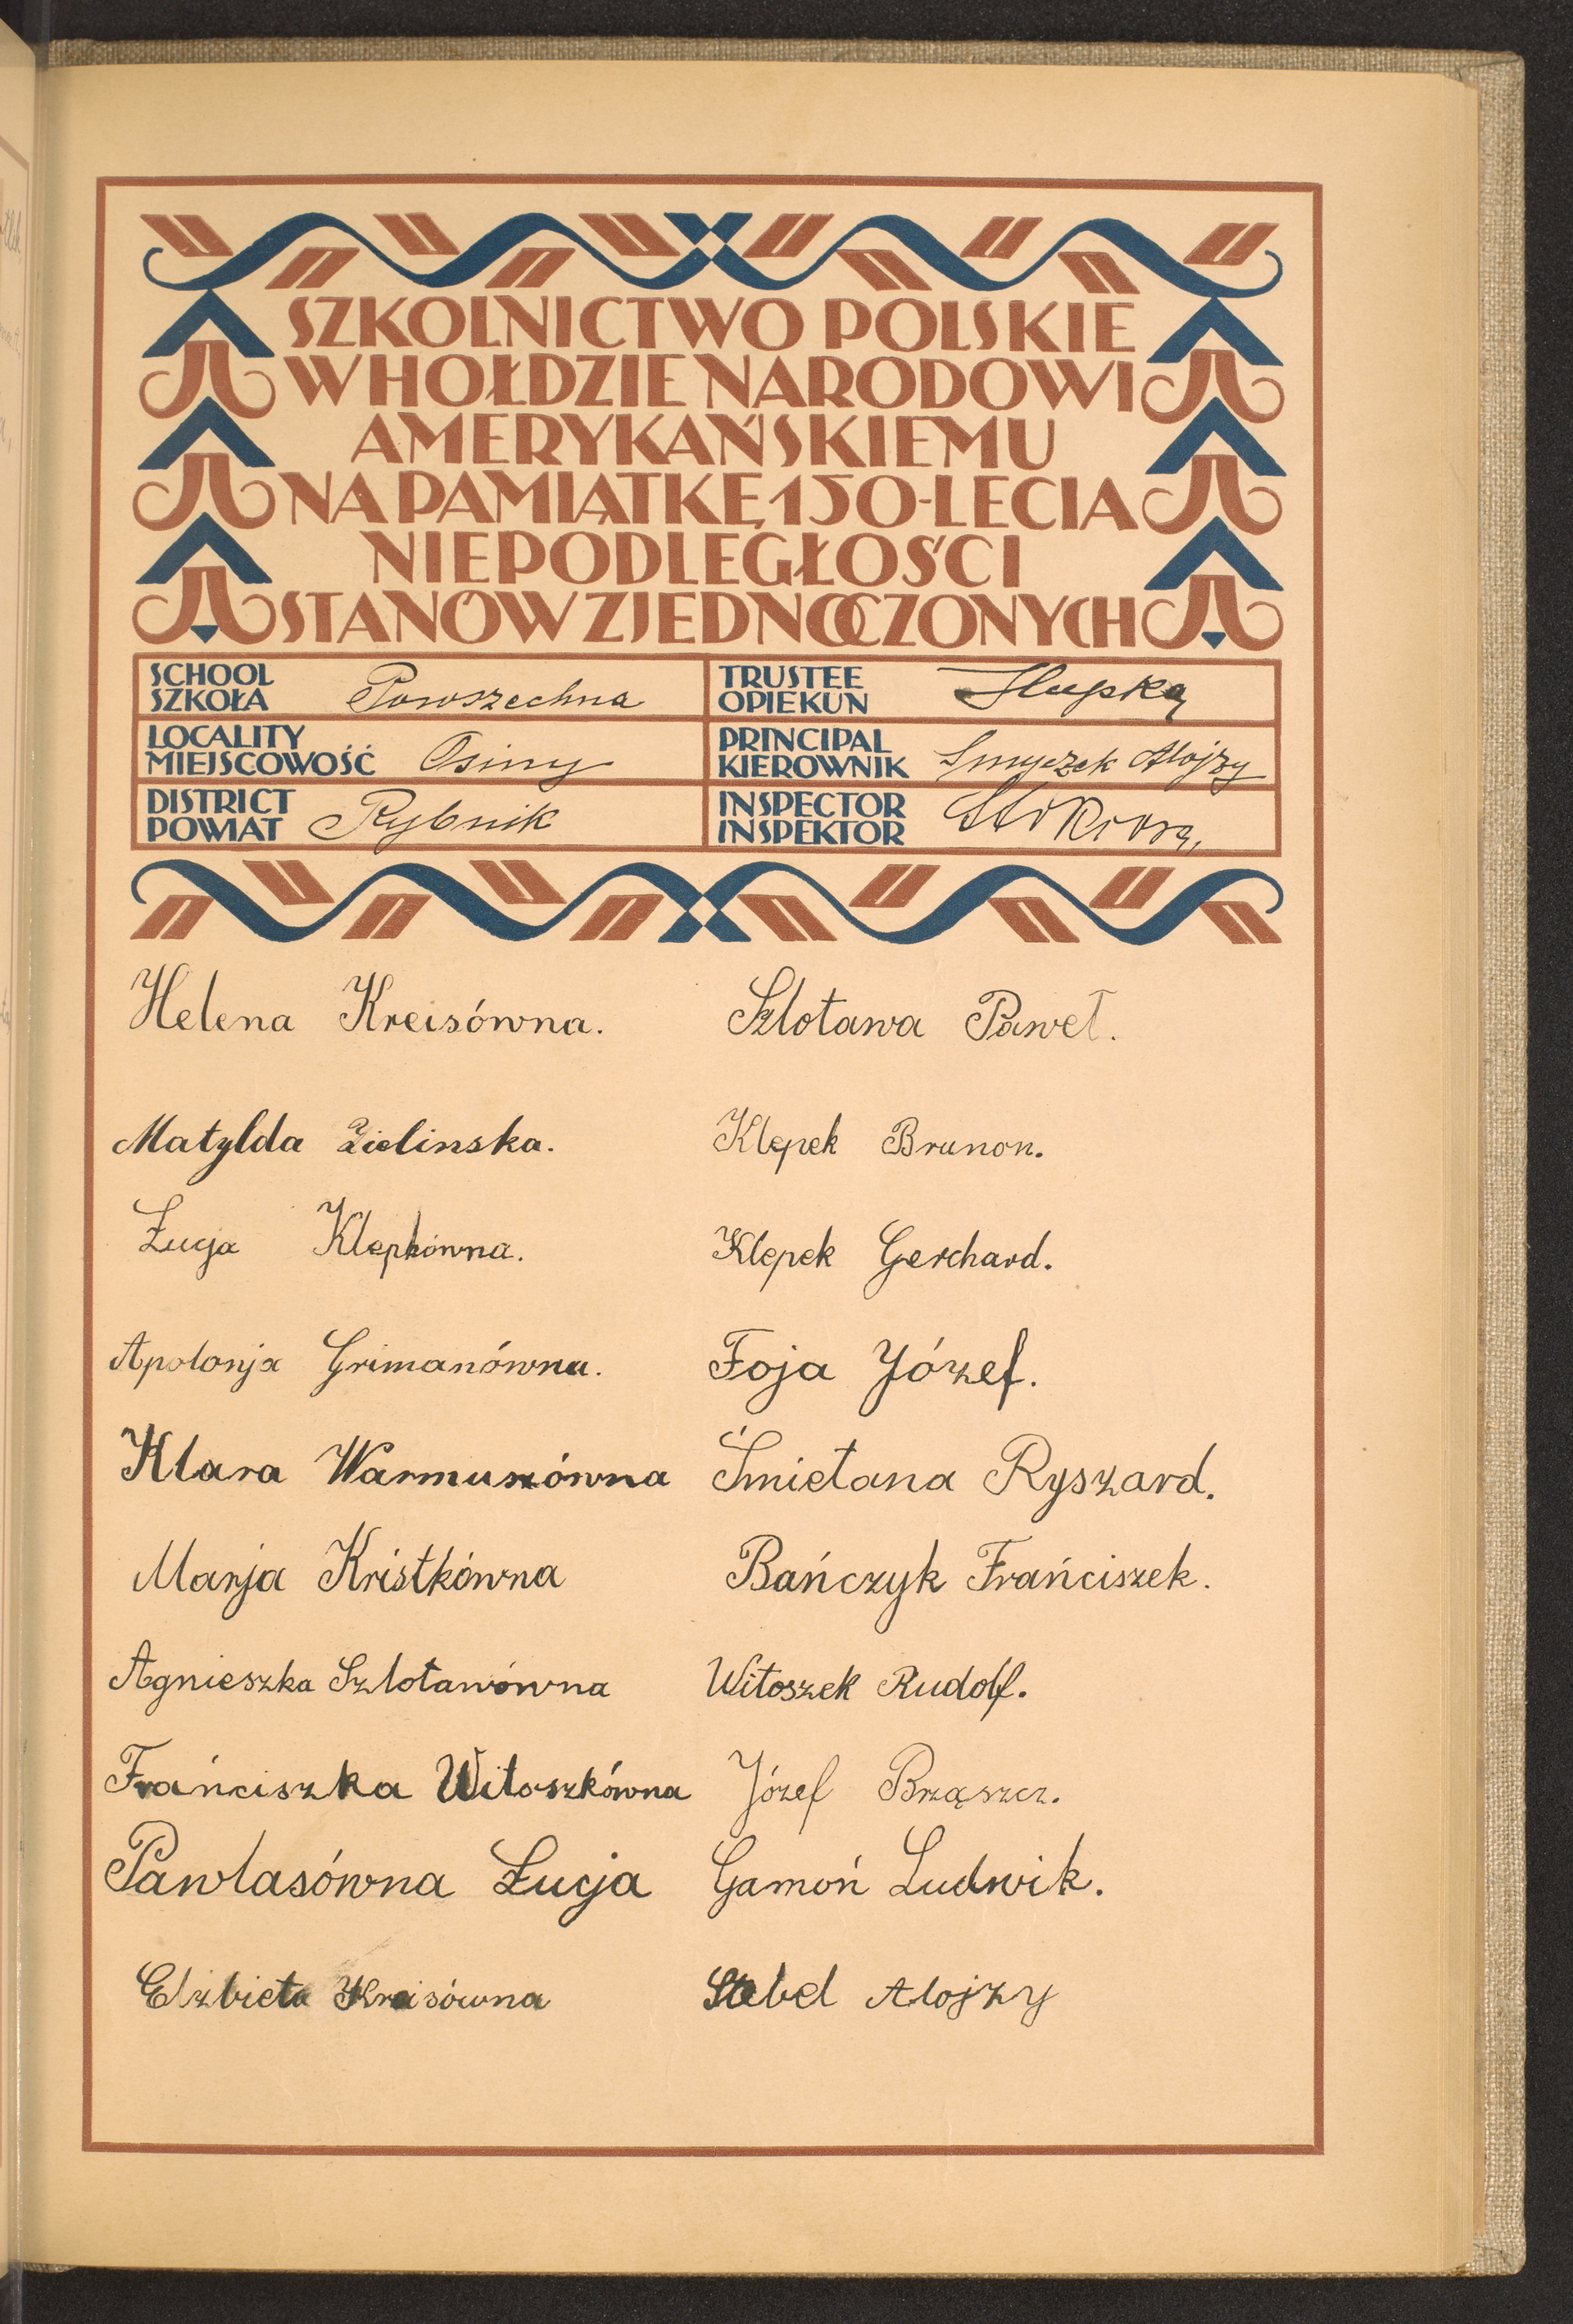 SZKOLNICTWO POLSKIE
W HOŁDZIE NARODOWI
AMERYKAŃSKIEMU
NA PAMIĄTKĘ 150-LECIA
NIEPODLEGŁOŚCI
STANÓW ZJEDNOCZONYCH
SCHOOL
SZKOŁA Powszechna
LOCALITY
MIEJSCOWOŚĆ Osiny
DISTRICT
POWIAT Rybnik
TRUSTEE
OPIEKUN
PRINCIPAL
KIEROWNIK Smyczek Alojzy
INSPECTOR
INSPEKTOR
Helena Kreisówna.
Matylda Zielinska.
Łucja Klepkówna.
Apolonja Grimanówna.
Klara Warmuzówna
Marja Kristkówna
Agnieszka Szlotawówna
Frańciszka Witoszkówna
Pawlasówna Łucja
Elzbieta Kreisówna
Szlotawa Paweł.
Klepek Brunon.
Klepek Gerchard.
Foja Józef.
Śmietana Ryszard.
Bańczyk Frańciszek.
Witoszek Rudolf.
Józef Brząszcz.
Gamoń Ludwik.
Alojzy